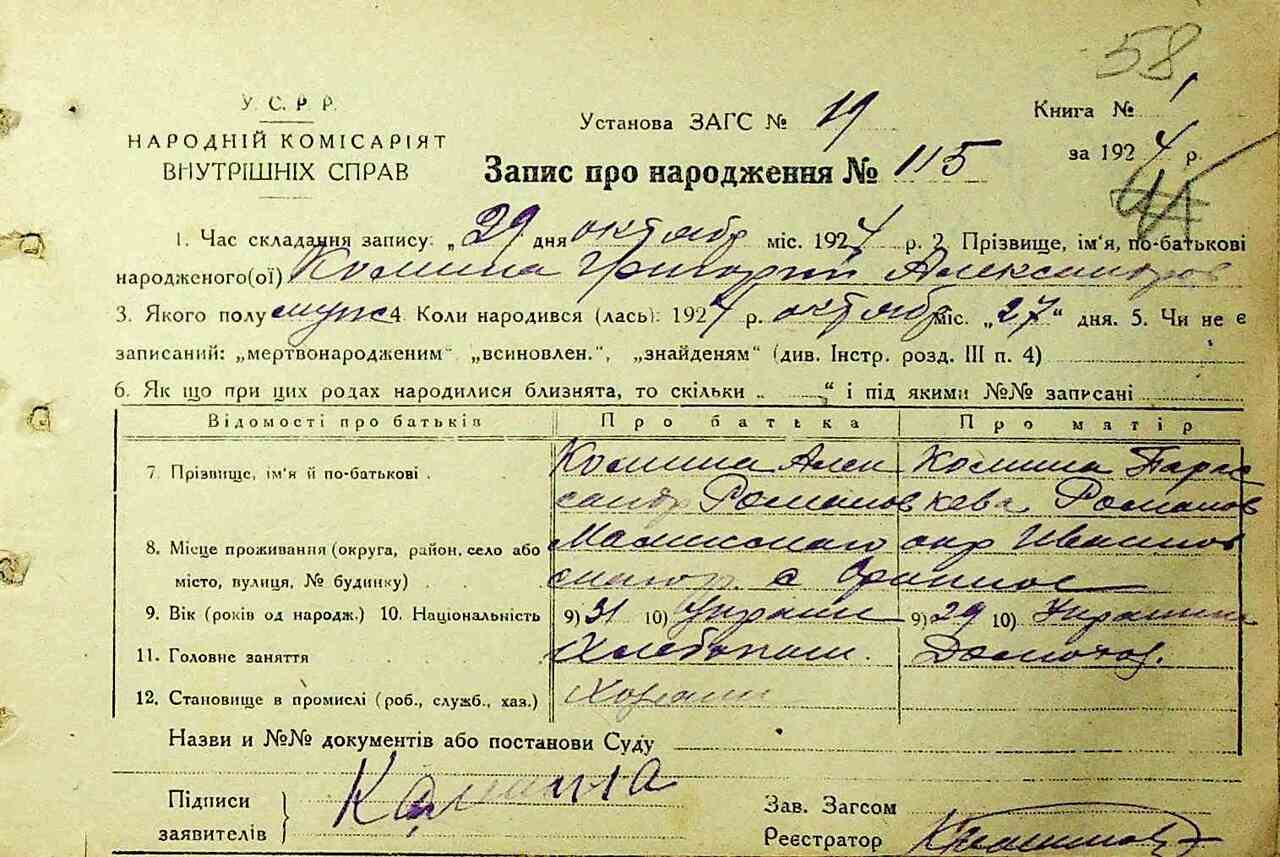 58
У. С. Р. Р.
НАРОДНІЙ КОМІСАРІЯТ
ВНУТРІШНІХ СПРАВ
Установа ЗАГС № 19
Книга № 1
за 1924 р.
Запис про народження № 115
1. Час складання запису: „29 дня октябр міс. 1924 р. 2. Прізвище, ім'я, по-батькові
народженого(ої) Григорий Александров
3. Якого полу муж 4. Коли народився (лась): 1924 р. октябр міс. „27“ дня. 5. Чи не є
записаний: „мертвонародженим“ „всиновлен.“, „знайденям“ (див. Інстр. розд. III п. 4)
6. Як що при цих родах народилися близнята, то скільки „ “ і під якими №№ записані
Відомості про батьків Про батька Про матір
7. Прізвище, ім'я й по-батькові . Алек Парас
сандр Романов кева Романов
8. Місце проживання (округа, район, село або окр Иванков
місто, вулиця, № будинку) . . с
9. Вік (років од народж.) 10. Національність 9) 31 10) Украин 9) 29 10) Украин
11. Головне заняття Хлебопаш. Домохоз.
12. Становище в промислі (роб., службі., хаз.) Хозяин
Назви и №№ документів або постанови Суду
Підписи
заявителів
Зав. Загсом
Реєстратор